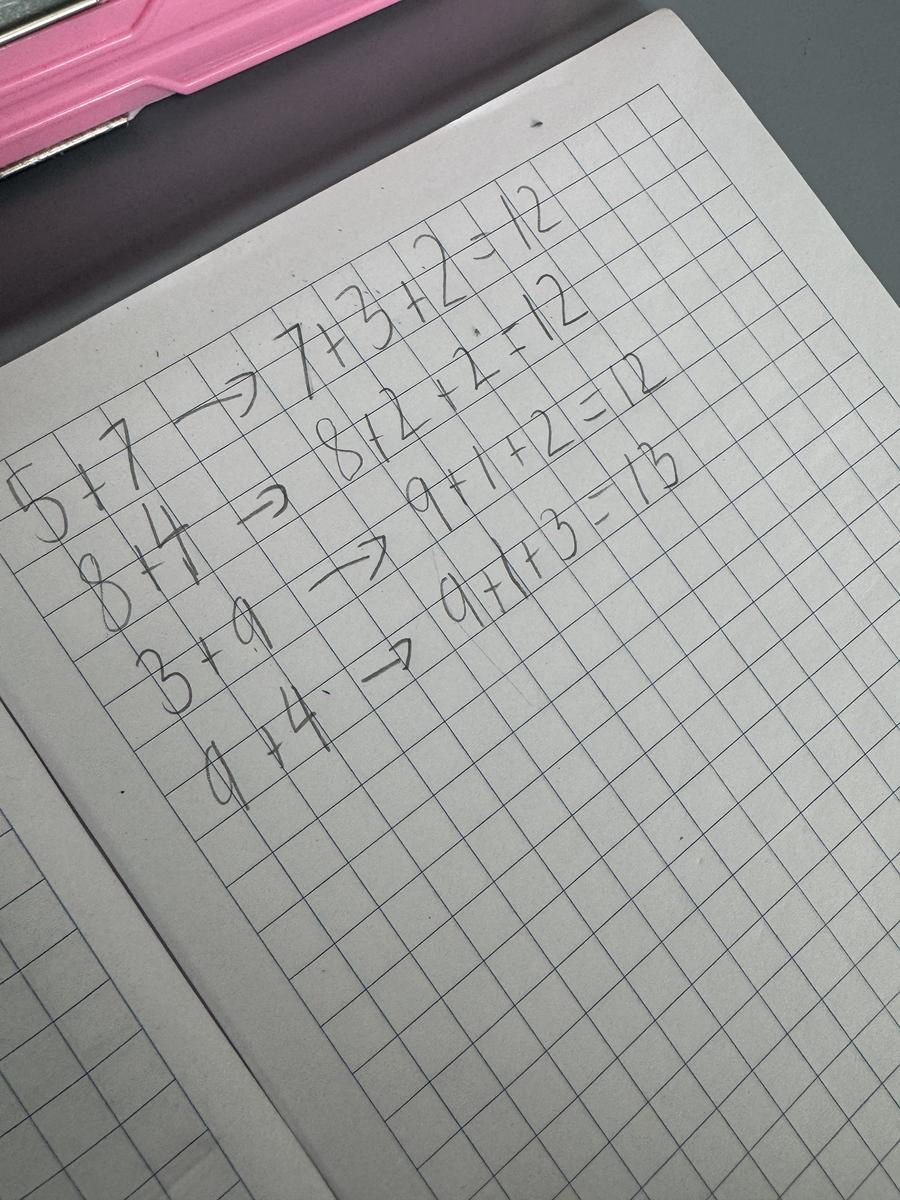 5+7 → 7+3+2=12
8+4 → 8+2+2=12
3+9 → 9+1+2=12
9+4 → 9+1+3=13